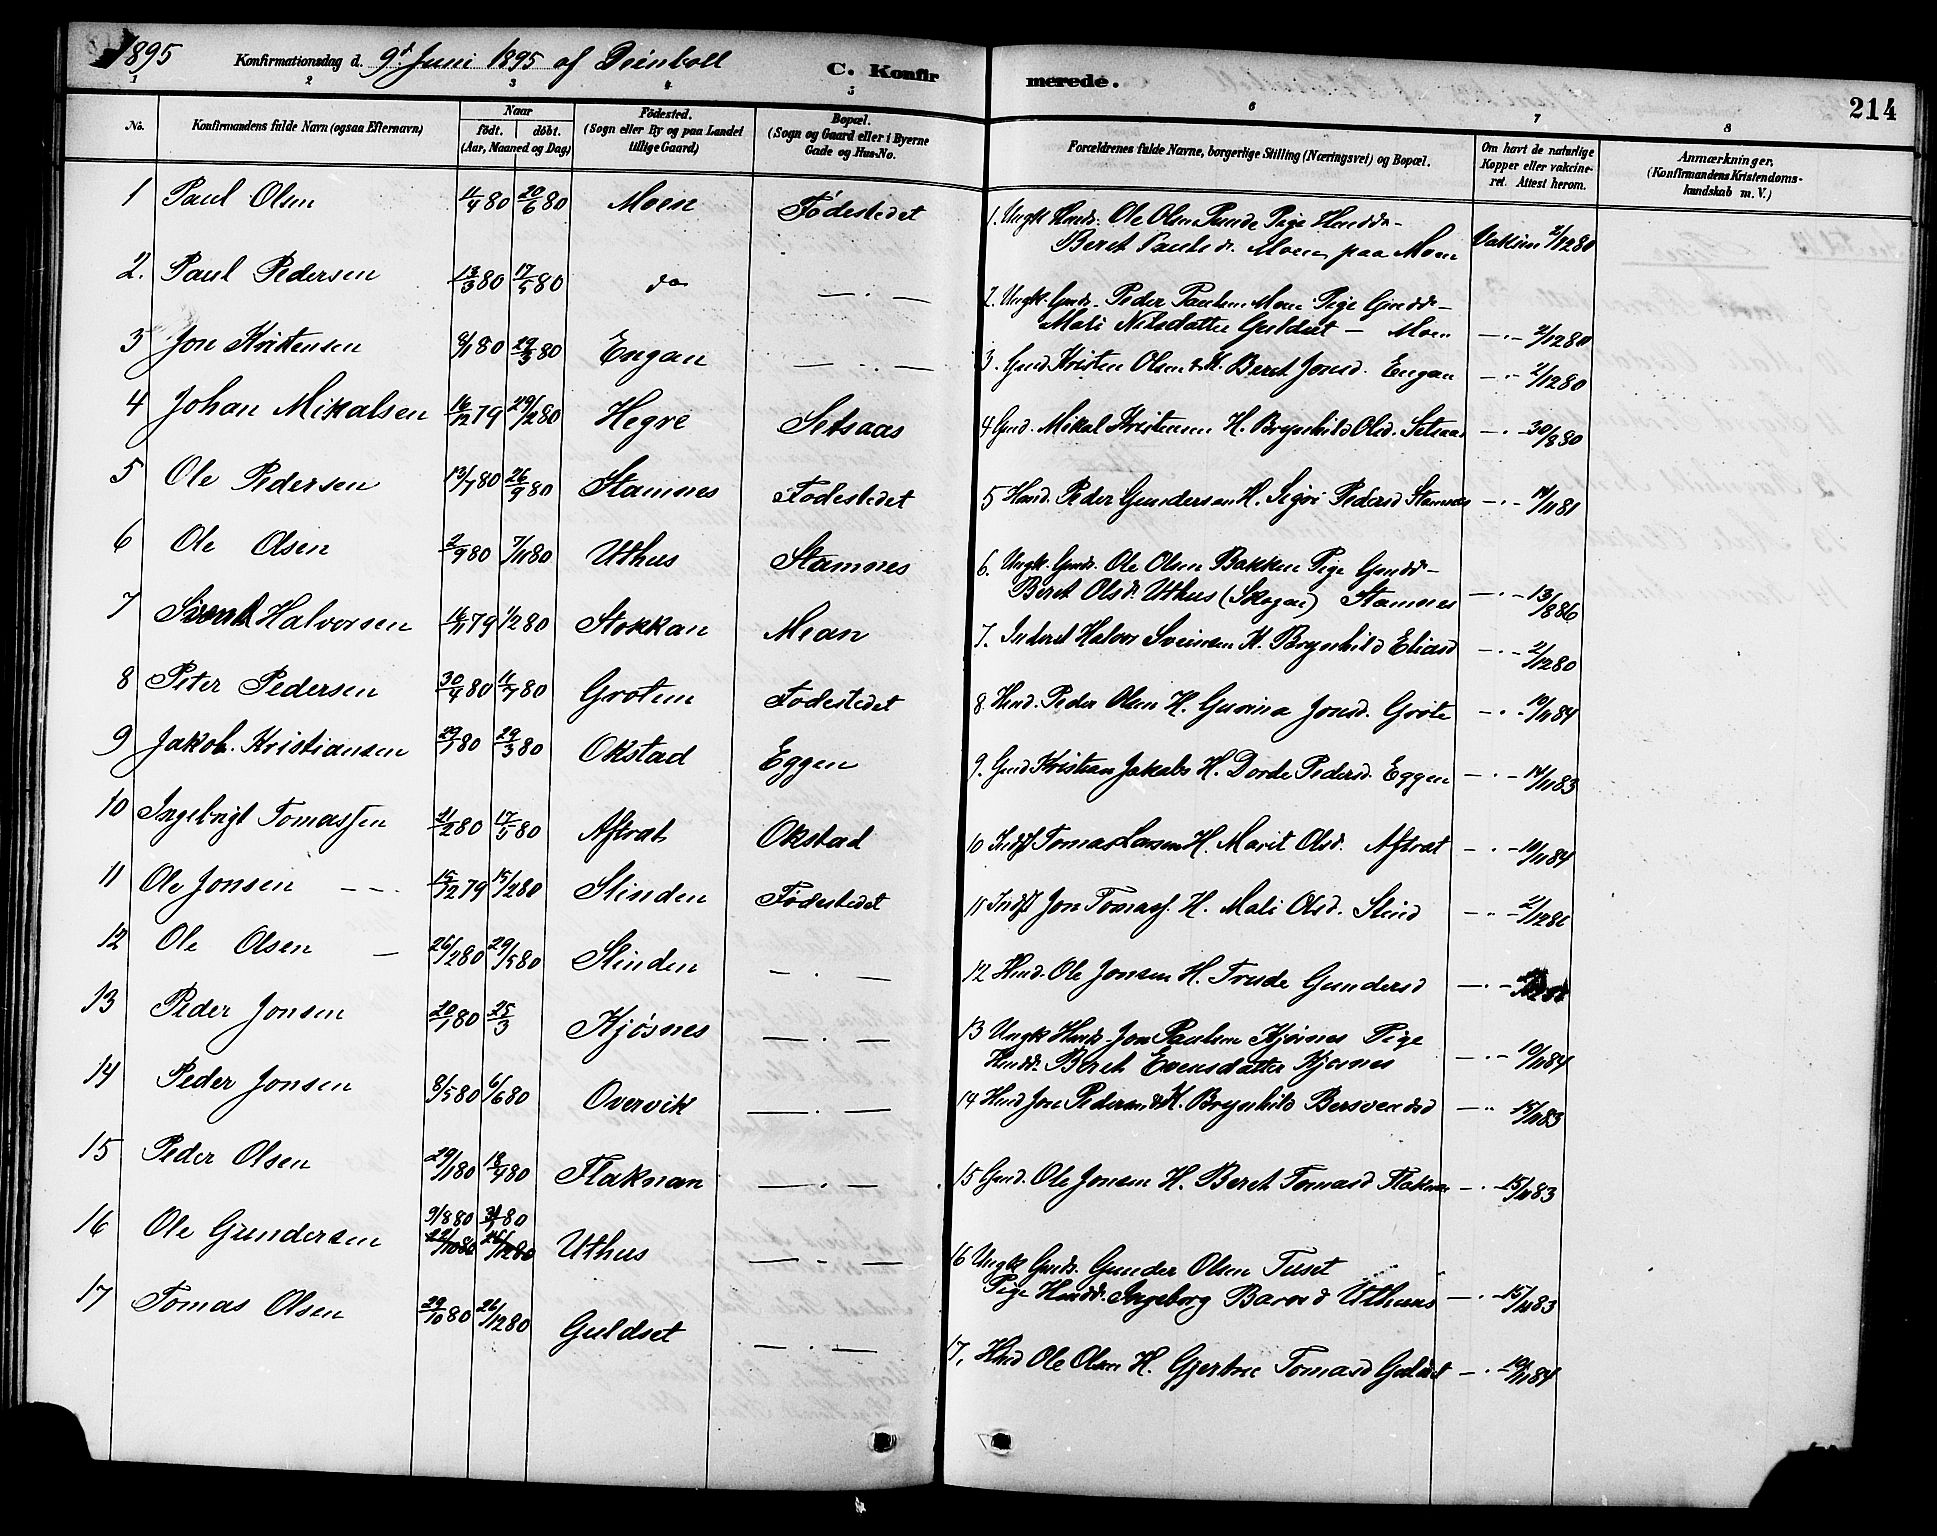 1895 Konfirmationsdag d. 9d Juni 1895 af Deinboll C. Konfirmerede. 214
1 2 3 4 5 6 7 8
No. Konfirmandens fulde Navn (ogsaa Efternavn) Naar født. døbt. (Aar, Maaned og Dag) Fødested. (Sogn eller By og paa Landet tillige Gaard) Bopæl. (Sogn og Gaard eller i Byerne Gade og Hus-No. Forældrenes fulde Navne, borgerlige Stilling (Næringsvei) og Bopæl. Om havt de naturlige Kopper eller vakcineret. Attest herom. Anmærkninger. (Konfirmandens Kristendomskundskab m. V.)
1 Paul Olsen 11/4 80 20/6 80 Moen Fødestedet 1. Ungk. Olsen Pige
Beret Moen paa Moen Vakcin 2/12 80
2. Paul Pedersen 13/3 80 17/5 80 do — . — 2. Ungk. Gmds. Peder Paulsen Moen Pige
Mali Nilsdatter Guldset — Moen — . — 2/12 80
3 Jon Kristensen 8/1 80 29/3 80 Engan — . — 3. Gmd. Kristen Olsen & H. Beret Jonsd. Engan — . — 2/12 80
4 Johan Mikalsen 16/12 79 29/2 80 Hegre Setsaas 4 Gmd. Mikal Kristensen H. Brynhild Olsd. Setsaas — . — 30/8 80
5 Ole Pedersen 13/7 80 26/9 80 Stamnes Fødestedet 5 Hmd. Peder Gundersen H. Sigri Pedersd Stamnes — . — 14/11 81
6 Ole Olsen 2/9 80 7/11 80 Uthus Stamnes 6. Ungk. Gmds. Ole Olsen Bakken Pige
Beret Olsd. Uthus (Skogan) Stamnes — . — 13/8 86
7 Halvorsen 16/11 79 1/2 80 Stokkan Mean 7. Inderst Halvor Sveinsen H. Brynhild Eliasd — . — 2/12 80
8 Peter Pedersen 30/4 80 11/7 80 Grotem Fodestedet 8. Hmd. Peder Olsen H. Jonsd. Grøte — . — 10/11 84
9 Jakob. Kristiansen 29/1 80 29/3 80 Okstad Eggen 9. Gmd Kristian Jakobs H. Dorde Pedersd. Eggen — . — 14/11 83
10 Ingebrigt Tomassen 21/2 80 17/5 80 Aftrat Okstad 10 Indst Tomas Larsen H. Marit Olsd. Aftrat — . — 10/11 84
11 Ole Jonsen 15/12 79 15/2 80 Slinden Fødestedet 11 Indst Jon Tomass. H. Mali Olsd. Slind — . — 2/12 81
12 Ole Olsen 26/2 80 29/5 80 Slinden — . — 12 Hmd. Ole Jonsen H. Trude Gundersd — . —
13 Peder Jonsen 20/1 80 25/3 Kjøsnes — . — 13 Ungk Hmds. Jon Paulsen Kjøsnes Pige
Hmdd. Beret Evensdatter Kjøsnes — . — 10/11 84
14 Peder Jonsen 8/5 80 6/6 80 Overvik — . — 14 Hmd Jon Pedersen & H. Brynhild Bersvendsd — . — 15/11 83
15 Peder Olsen 29/1 80 18/4 80 Flaknan — . — 15 Gmd. Ole Jonsen H. Beret Tomasd Flaknan — . — 15/11 83
16 Ole Gundersen 9/8 80 Uthus — . — 16 Ungk Gmds. Gunder Olsen Tuset
Pige Hmdd. Ingeborg — . — 15/11 83
17 Tomas Olsen 29/10 80 26/12 80 Guldset — . — 17, Hmd Ole Olsen H. Tomasd Guldset — . — 10/11 84